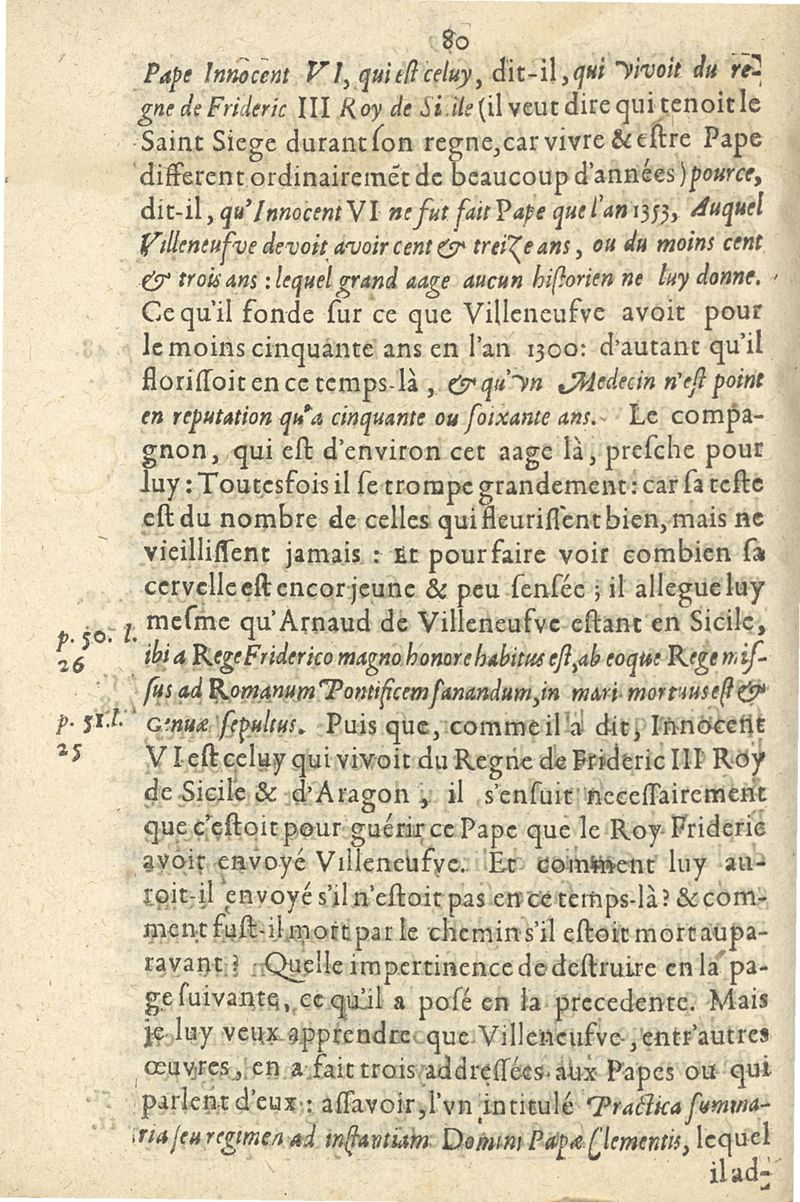 80
Pape Innocent VI, qui est celuy, dit-il, qui vivoit du re-
gne de Frideric III Roy de Si.ile (il veut dire qui tenoit le
Saint Siege durant son regne, car vivre & estre Pape
different ordinairemẽt de beaucoup d'années) pource,
dit-il, qu'Innocent VI ne fut fait Pape que l'an 1353, Auquel
Villeneufve devoit avoir cent & treize ans, ou du moins cent
& trois ans : lequel grand aage aucun historien ne luy donne.
Ce qu'il fonde sur ce que Villeneufve avoit pour
le moins cinquante ans en l'an 1300: d'autant qu'il
florissoit en ce temps-là, & qu'vn Medecin n'est point
en reputation qu'a cinquante ou soixante ans. Le compa-
gnon, qui est d'environ cet aage là, presche pour
luy : Toutesfois il se trompe grandement : car sa teste
est du nombre de celles qui fleurissent bien, mais ne
vieillissent jamais : Et pour faire voir combien sa
cervelle est encor jeune & peu sensée ; il allegue luy
mesme qu'Arnaud de Villeneufve estant en Sicile,
p. 50. l. 26
ibi a Rege Friderico magno honore habitus est, ab eoque Rege mis-
sus ad Romanum Pontificem sanandum, in mari mortuus est &
p. 51. l. 25
Genuæ sepultus. Puis que, comme il a dit, Innocent
VI est celuy qui vivoit du Regne de Frideric III Roy
de Sicile & d'Aragon, il s'ensuit necessairement
que c'estoit pour guérir ce Pape que le Roy Frideric
avoit envoyé Villeneufve. Et comment luy au-
roit-il envoyé s'il n'estoit pas en ce temps-là? & com-
ment fust-il mort par le chemin s'il estoit mort aupa-
ravant? Quelle impertinence de destruire en la pa-
ge suivante, ce qu'il a posé en la precedente. Mais
je luy veux apprendre que Villeneufve, entr'autres
œuvres, en a fait trois addressées aux Papes ou qui
parlent d'eux : assavoir, l'vn intitulé Practica summa-
ria seu regimen ad instantiam Domini Papæ Clementis, lequel
il ad-